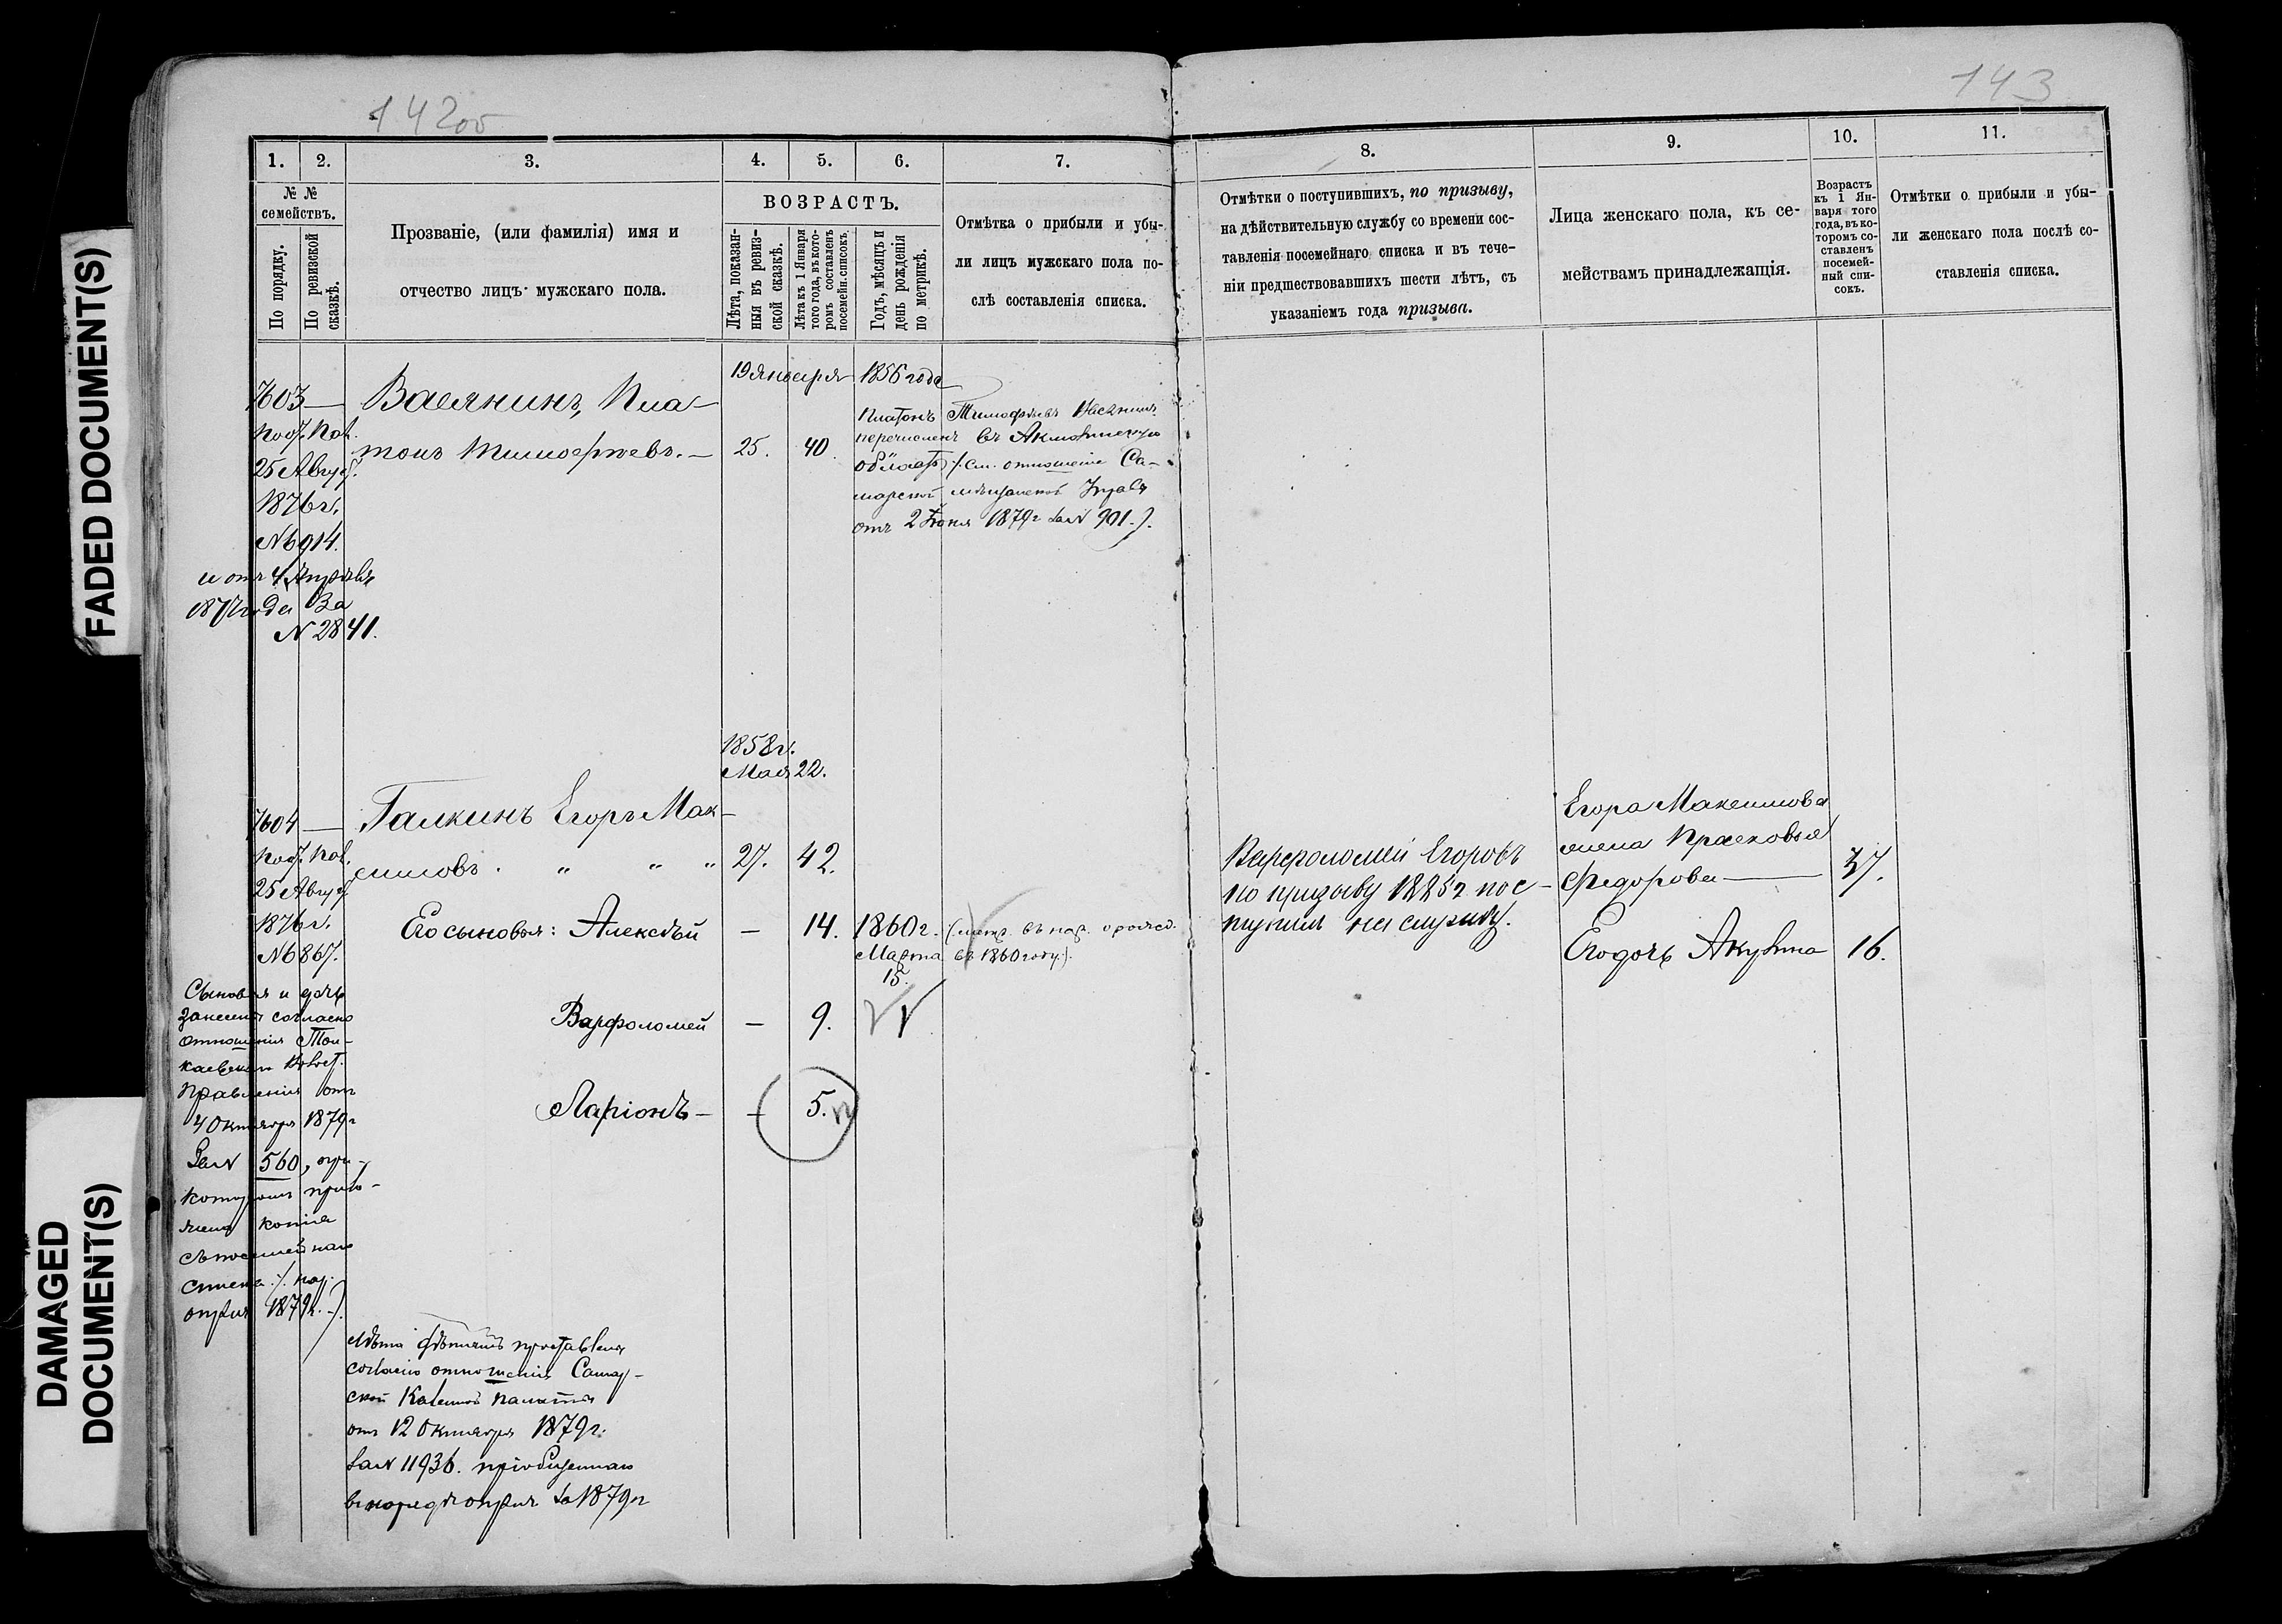 FADED DOCUMENT(S)
DAMAGED
DOCUMENT(S)
142об
1.
2.
3.
4.
5.
6.
7.
№ №
семействъ.
По порядку.
По ревизской
сказкѣ.
Прозваніе, (или фамилія) имя и
отчество лицъ мужскаго пола.
ВОЗРАСТЪ.
Лѣта, показан-
ныя въ ревиз-
ской сказкѣ.
Лѣта къ 1 Января
того года, въ кото-
ромъ составленъ
посемейн. списокъ.
Годъ, мѣсяцъ и
день рожденія
по метрикѣ.
Отмѣтка о прибыли и убы-
ли лицъ мужскаго пола по-
слѣ составленія списка.
19 января 1856 года
7603 —
25 Август.
1876 г.
№ 6914.
и отъ 4 Апрѣля
187 года За
№ 2841.
Васянинъ, Пла-
тонъ Тимофѣевъ. —
25.
40.
Платонъ Тимофѣевъ Васянинъ
перечисленъ въ Акмолинскую
область /. см. отношеніе Са-
марской мѣщанской Управы
отъ 2 Іюня 1879 г за № 901. /.
1858 г.
Мая 22.
7604 —
25 Август.
1876 г.
№ 6867.
Галкинъ Егоръ Мак-
симовъ . " " "
27.
42.
Его сыновья: Алексѣй
—
14.
1860 г.
Марта
15.
въ 1860 году).
Варфоломей
—
9.
Ларіонъ —
—
5.
Сыновья и дочь
занесены согласно
отношенія Тол-
каевскаго Волост.
Правленія отъ
4 Октября 1879 г
За № 560, при
которомъ прило-
жена копія
съ посемейнаго
списка /. нар.
опред. 1879 г. /.
Лѣта дѣтямъ проставлены
согласно отношенія Самар-
ской Казенной палаты
отъ 12 Октября 1879 г.
за № 11936. пріобщеннаго
въ наряд опред. за 1879 г
143
8.
9.
10.
11.
Отмѣтки о поступившихъ, по призыву,
на дѣйствительную службу со времени сос-
тавленія посемейнаго списка и въ тече-
ніи предшествовавшихъ шести лѣтъ, съ
указаніемъ года призыва.
Лица женскаго пола, къ се-
мействамъ принадлежащія.
Возрастъ
къ 1 Ян-
варя того
года, въ ко-
торомъ со-
ставленъ
посемей-
ный спи-
сокъ.
Отмѣтки о прибыли и убы-
ли женскаго пола послѣ со-
ставленія списка.
Варфоломей Егоровъ
по призыву 1885 г пос-
тупилъ на службу.
Егора Максимова
жена Прасковья
Федорова —
37.
Его дочь Акулина
16.